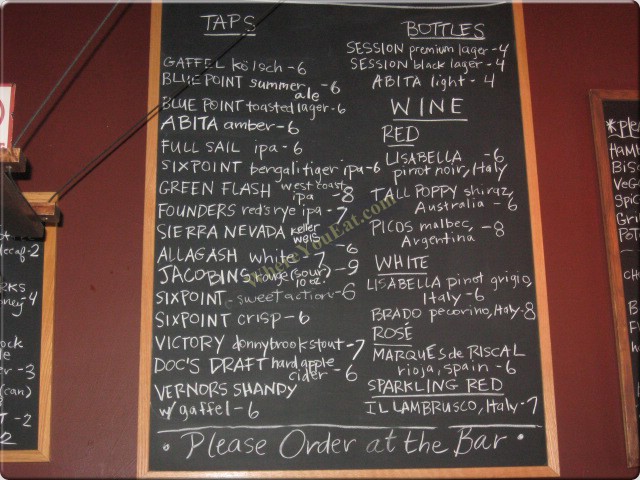 TAPS
GAFFEL kölsch - 6
BLUE POINT summer ale - 6
BLUE POINT toasted lager - 6
ABITA amber - 6
FULL SAIL ipa - 6
SIXPOINT bengali tiger ipa - 6
GREEN FLASH west coast ipa - 8
FOUNDERS red's rye ipa - 7
SIERRA NEVADA keller weis - 6
ALLAGASH white - 7
JACOBINS rouge (sour) 10 oz. - 9
SIXPOINT sweet action - 6
SIXPOINT crisp - 6
VICTORY donnybrook stout - 7
DOC'S DRAFT hard apple cider - 6
VERNORS SHANDY
w/ gaffel - 6
BOTTLES
SESSION premium lager - 4
SESSION black lager - 4
ABITA light - 4
WINE
RED
LISABELLA - 6
pinot noir, Italy
TALL POPPY shiraz,
Australia - 6
PICOS malbec, - 8
Argentina
WHITE
LISABELLA pinot grigio,
Italy - 6
BRADO pecorino, Italy - 8
ROSÉ
MARQUES de RISCAL
rioja, spain - 6
SPARKLING RED
IL LAMBRUSCO, Italy - 7
• Please Order at the Bar •
WhereYouEat.com
-2
-4
-3
(can)
-2
2
HAMB
VEG
SPIC
GRI
POT